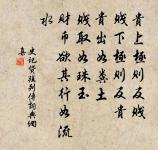 貴上極則反賤
賤下極則反貴
貴出如糞土
賤取如珠玉
財币欲其行如流
水
史记貨殖列傳詞典網
集